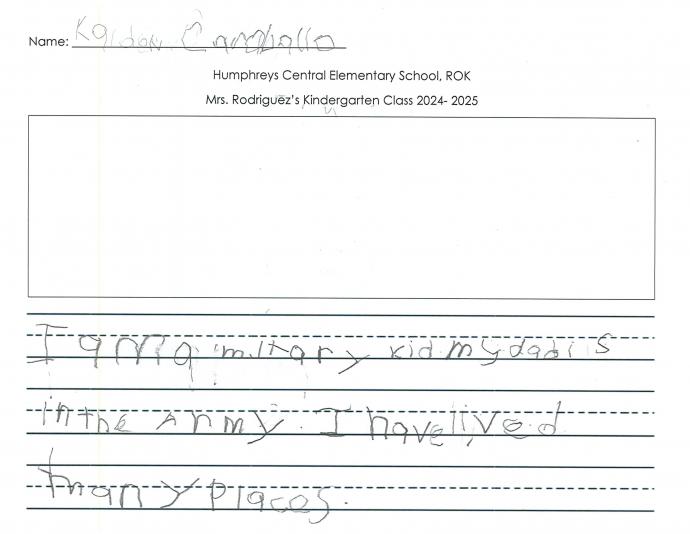 Name: Kaiden Caraballo
Humphreys Central Elementary School, ROK
Mrs. Rodriguez's Kindergarten Class 2024- 2025
I am a military kid my dad is
in the Army. I have lived
many places.